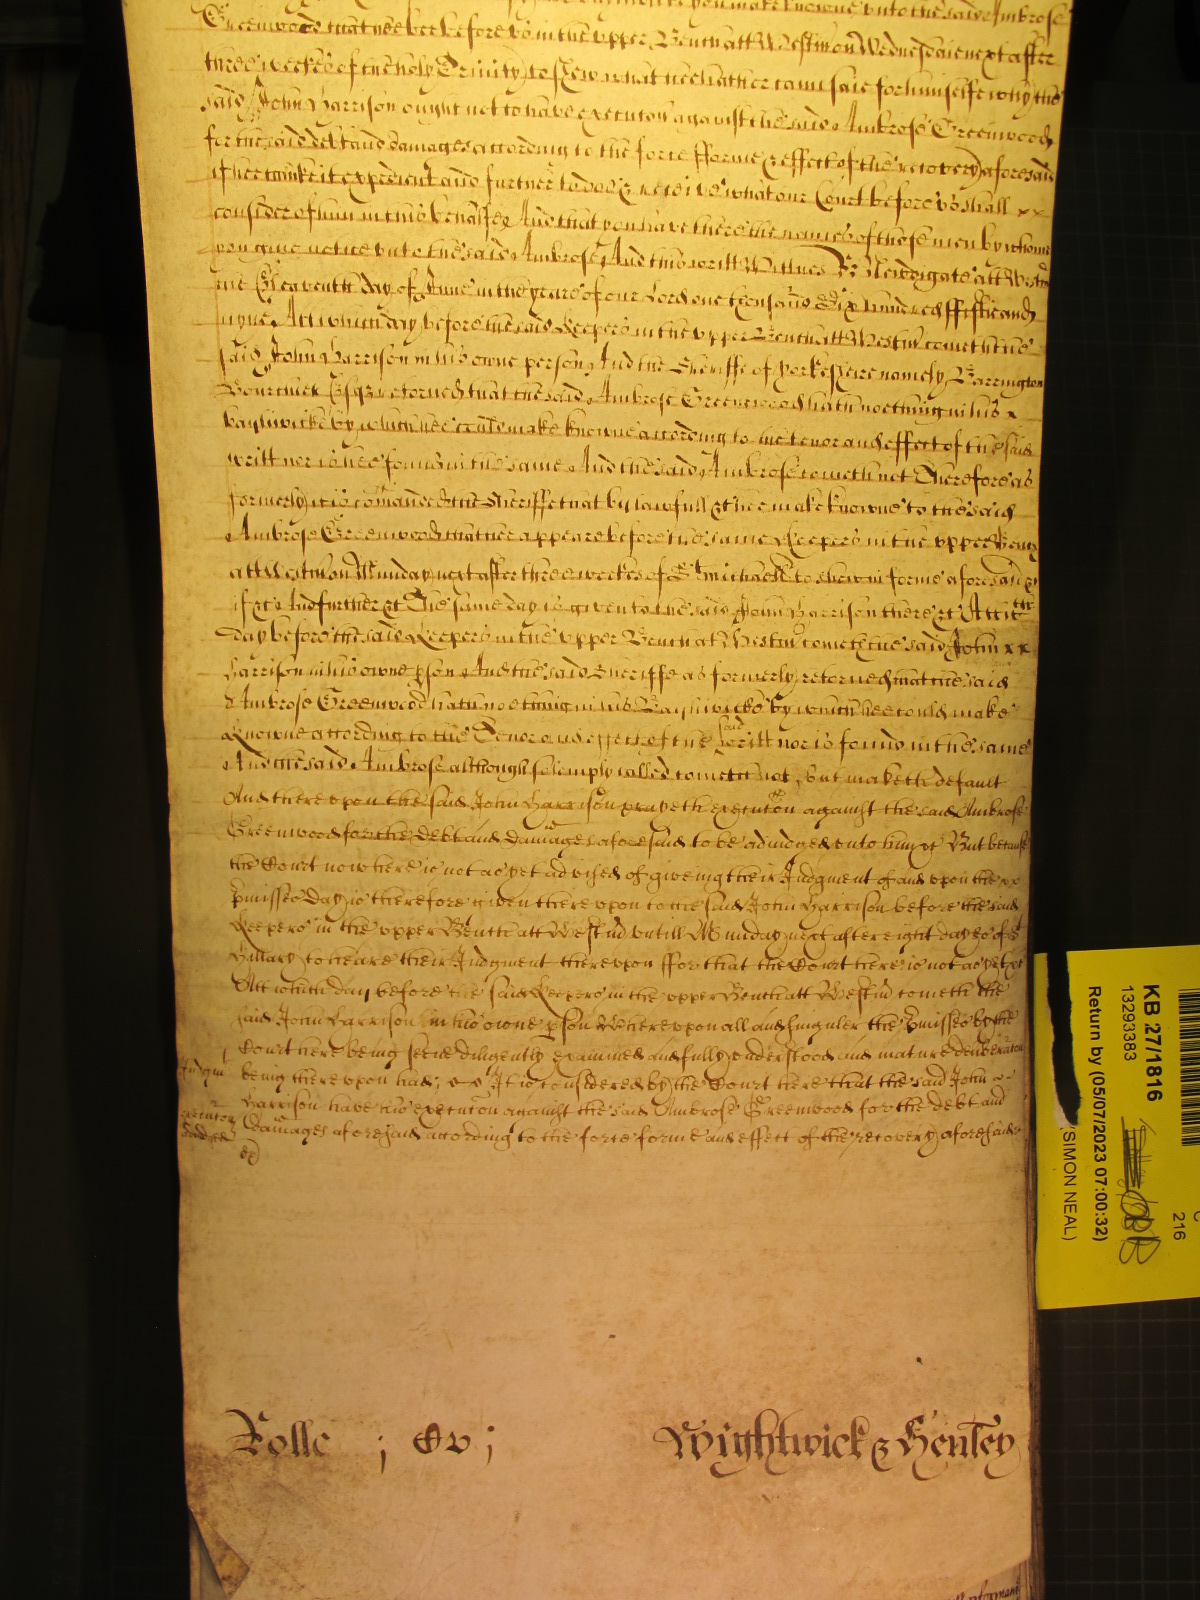 you make knowne unto the said Ambrose
Greenwood that hee bee before us in the upper Bench att Westm on Wednesdaie next after
three weekes of the holy Trinity to shew what hee hath or can saie for himselfe why the
said John Harrison ought not to have execucon against the said Ambrose Greenwood
for the said debt and damages according to the force fforme & effect of the recovery aforesaid
if hee thinke it expedient and further to doe & receive what our Court before us shall xx
consider of him in this behalfe And that you have there the names of those men by whome
you give notice unto the said Ambrose And this writt Wittnes R Newdigate att Westm
the Eleaventh day of June in the yeare of our Lord one thousand Six hundred ffiftie and
nyne Att which day before the said Keepers in the upper Bench att Westm cometh the
said John Harrison in his owne person And the Sheriffe of Yorkeshire namely Barrington
Bourchier Esqr retorned that the said Ambrose Greenwood hath noething in his x
bayliwicke by which hee could make knowne according to the tenor and effect of the said
writt nor is hee found in the same And the said Ambrose cometh not Therefore as
formerly it is comanded the Sheriffe that by lawfull &c hee make knowne to the said
Ambrose Greenwood that hee appeare before the same Keepers in the upper Bench
att Westm on Munday next after three weekes of St Michaell to shew in forme aforesaid &c
if &c And further &c The same day is given to the said John Harrison there &c Att wch
day before the said Keepers in the upper Bench at Westm cometh the said John xx
Harrison in his owne pson And the said Sheriffe as formerly retorned that the said
Ambrose Greenwood hath noething in his Bayliwicke by which hee could make
knowne according to the Tenor and effect of the said writt nor is found in the same
And the said Ambrose although solemply called cometh not, but maketh default
And thereupon the said John Harrison prayeth execucon against the said Ambrose
Greenwood for the debt and damages aforesaid to be adiudged unto him &c But because
the Court now here is not as yet advised of giveing their Judgment of and upon the xx
pmisses day is therefore given thereupon to the said John Harrison before the said
Keepers in the upper Bench att Westm untill Munday next after eight dayes of St
Hillary to heare their Judgment thereupon ffor that the Court here is not as yet &c
Att which day before the said Keepers in the upper Bench att Westm cometh the
said John Harrison in his owne pson Whereupon all and singuler the pmisses by the
Court here being seene diligently examined and fully understood and mature deliberacon
Judgmt
being thereupon had, It is considered by the Court here that the said John
Harrison have his execucon against the said Ambrose Greenwood for the debt and
execucon
adiudged
Damages aforesaid according to the force forme and effect of the recovery aforesaid
&c
Rolle ; Ev ;
Wightwick & Henley
KB 27/1816
13293383
Return by (05/07/2023 07:00:32)
(SIMON NEAL)
216